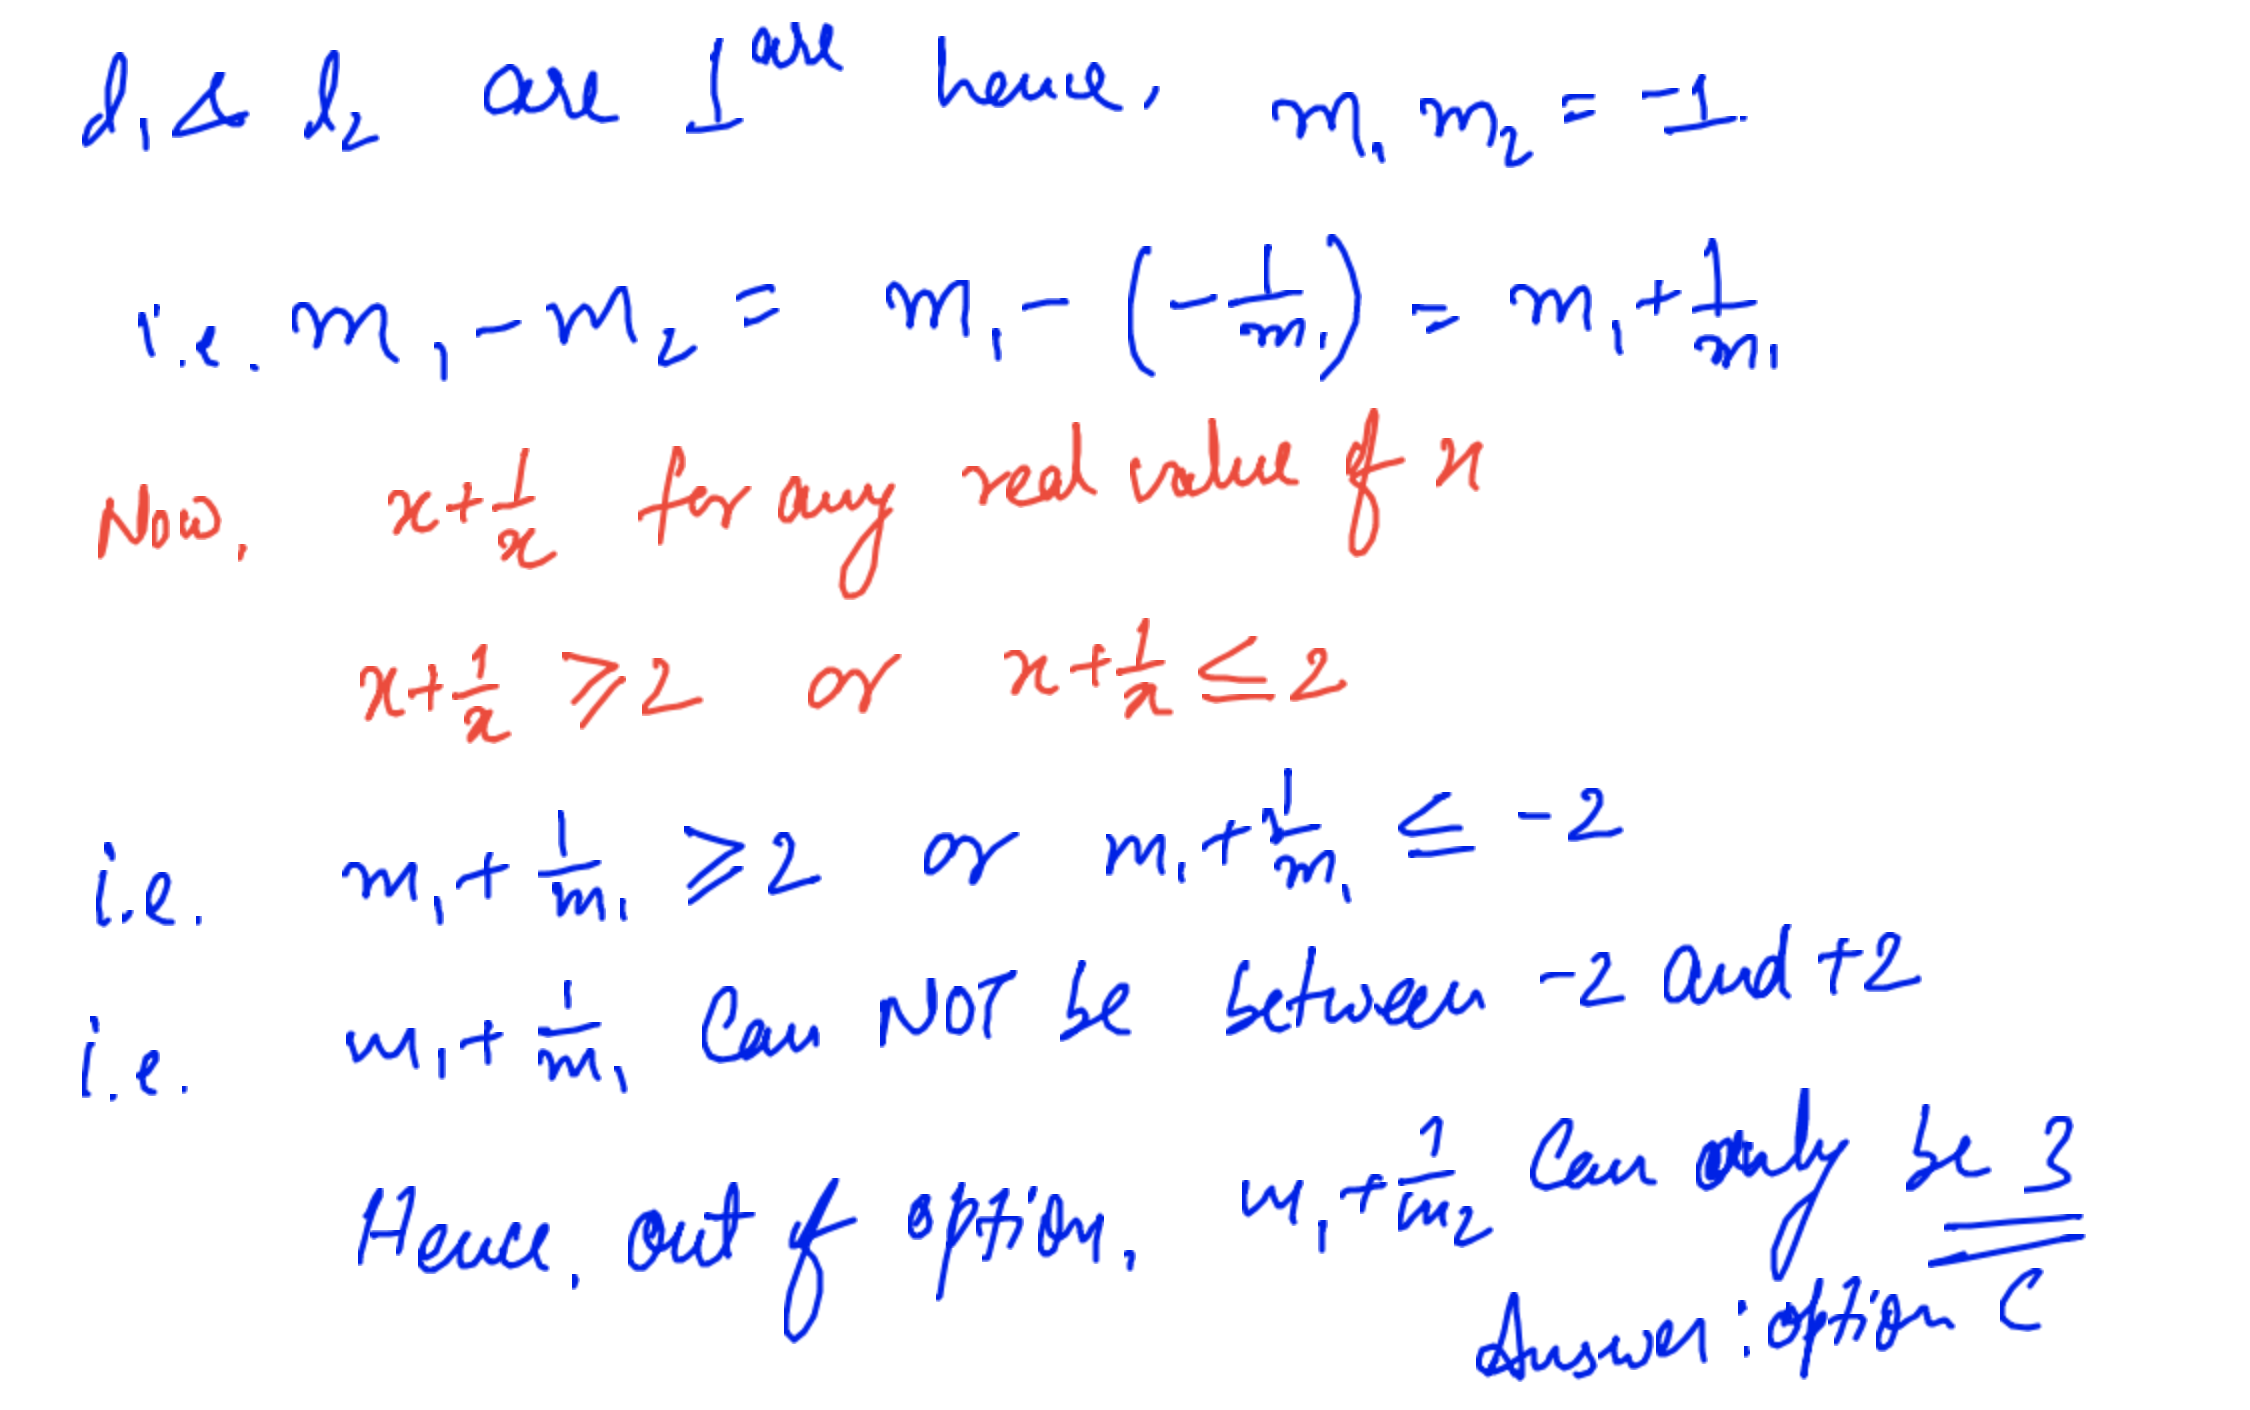 l₁ & l₂ are ⊥are hence, m₁ m₂ = -1
i.e. m₁ - m₂ = m₁ - (-1/m₁) = m₁ + 1/m₁
Now, x + 1/x for any real value of x
x + 1/x ≥ 2 or x + 1/x ≤ 2
i.e. m₁ + 1/m₁ ≥ 2 or m₁ + 1/m₁ ≤ -2
i.e. m₁ + 1/m₁ Can NOT be between -2 and +2
Hence, out of option, m₁ + 1/m₂ Can only be 3
Answer: option C